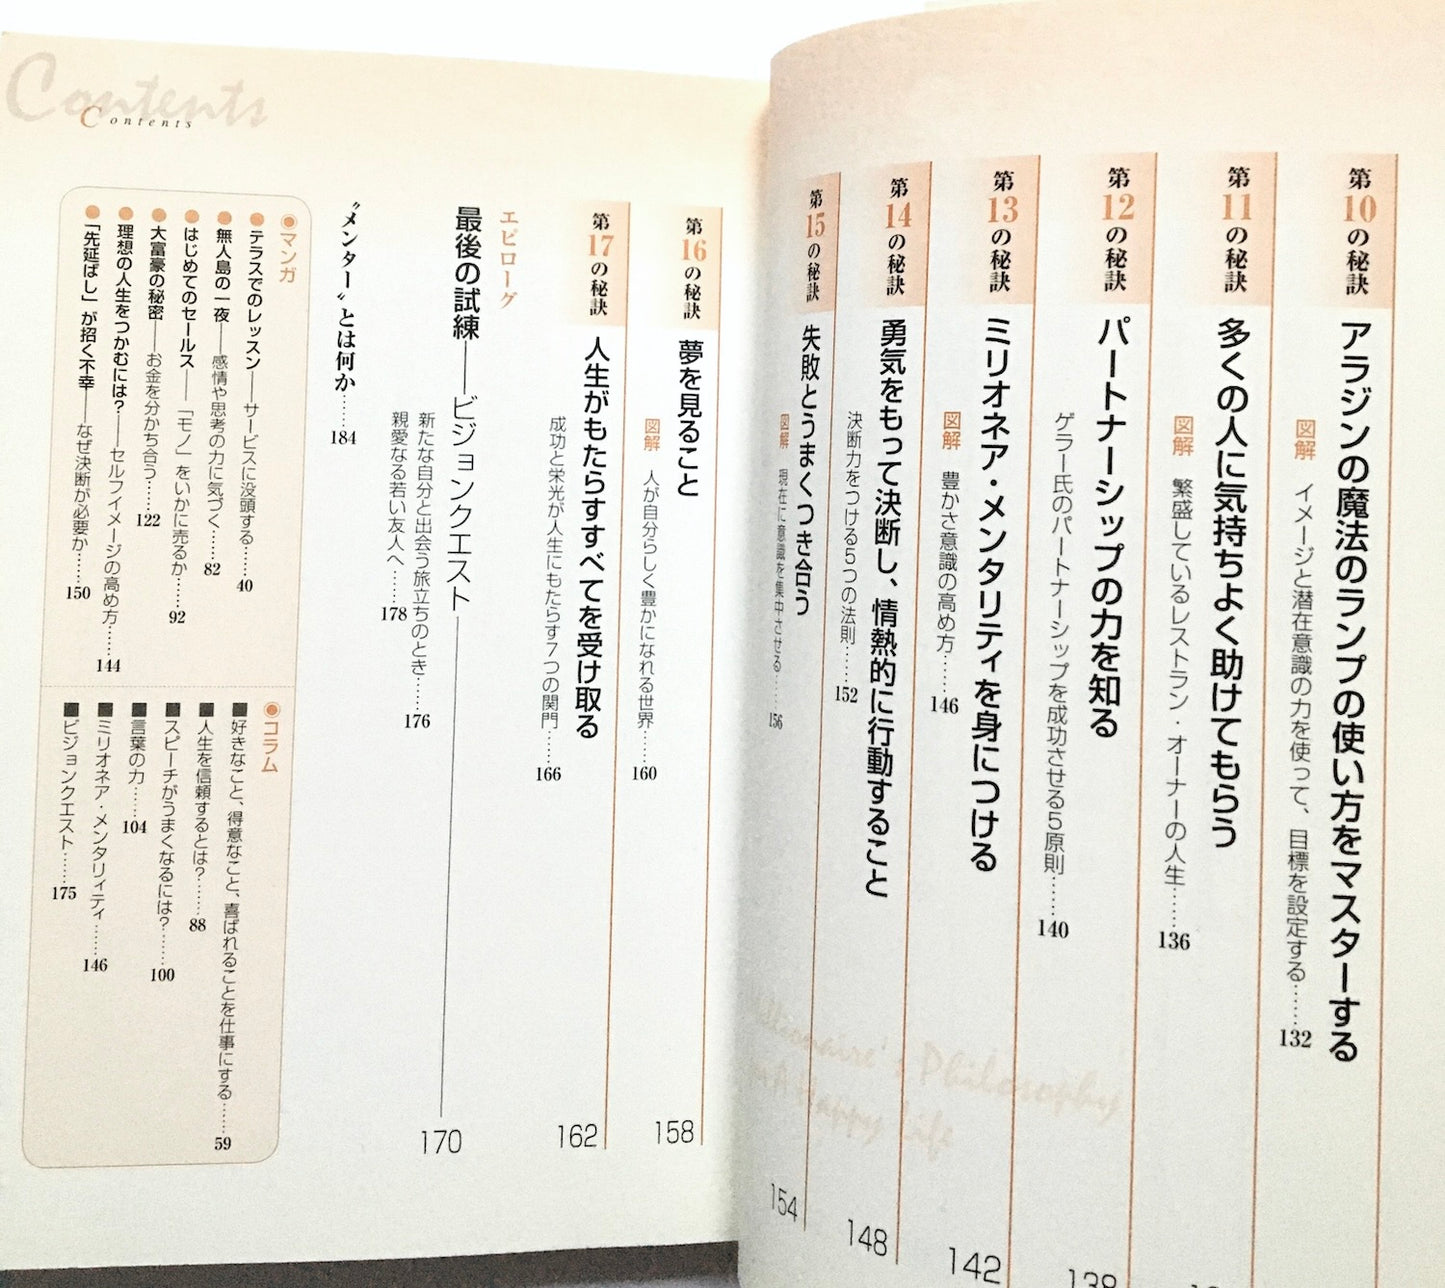 第10の秘訣
アラジンの魔法のランプの使い方をマスターする
図解 イメージと潜在意識の力を使って、目標を設定する……132
第11の秘訣
多くの人に気持ちよく助けてもらう
図解 繁盛しているレストラン・オーナーの人生……136
第12の秘訣
パートナーシップの力を知る
138
ゲラー氏のパートナーシップを成功させる5原則……140
第13の秘訣
ミリオネア・メンタリティを身につける
142
図解 豊かさ意識の高め方……146
第14の秘訣
勇気をもって決断し、情熱的に行動すること
148
決断力をつける5つの法則……152
第15の秘訣
失敗とうまくつき合う
154
図解 現在に意識を集中させる……156
Millionaire's Philosophy
Happy Life
Contents
Contents
第16の秘訣
夢を見ること
158
図解 人が自分らしく豊かになれる世界……160
第17の秘訣
人生がもたらすすべてを受け取る
162
成功と栄光が人生にもたらす7つの関門……166
エピローグ
最後の試練――ビジョンクエスト
170
新たな自分と出会う旅立ちのとき……176
親愛なる若い友人へ……178
〝メンター〟とは何か……184
◉マンガ
●テラスでのレッスン――サービスに没頭する……40
●無人島の一夜――感情や思考の力に気づく……82
●はじめてのセールス――「モノ」をいかに売るか……92
●大富豪の秘密――お金を分かち合う……122
●理想の人生をつかむには?――セルフイメージの高め方……144
●「先延ばし」が招く不幸――なぜ決断が必要か……150
◉コラム
■好きなこと、得意なこと、喜ばれることを仕事にする……59
■人生を信頼するとは?……88
■スピーチがうまくなるには?……100
■言葉の力……104
■ミリオネア・メンタリィティ……146
■ビジョンクエスト……175